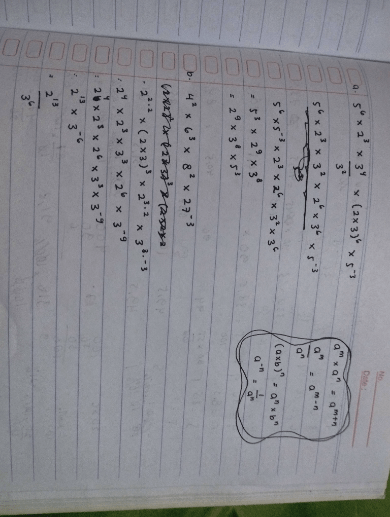 No.
Date:
a. 5⁶ × 2³ × 3⁴ × (2×3)⁶ × 5⁻³
3²
5⁶ × 2³ × 3² × 2⁶ × 3⁶ × 5⁻³
5⁶ × 5⁻³ × 2³ × 2⁶ × 3² × 3⁶
= 5³ × 2⁹ × 3⁸
= 2⁹ × 3⁸ × 5³
b. 4² × 6³ × 8² × 27⁻³
= 2²·² × (2×3)³ × 2³·² × 3³·⁻³
= 2⁴ × 2³ × 3³ × 2⁶ × 3⁻⁹
= 2⁴ × 2³ × 2⁶ × 3³ × 3⁻⁹
= 2¹³ × 3⁻⁶
= 2¹³
3⁶
aᵐ × aⁿ = aᵐ⁺ⁿ
aᵐ
aⁿ = aᵐ⁻ⁿ
(a×b)ⁿ = aⁿ × bⁿ
a⁻ⁿ = 1
aⁿ